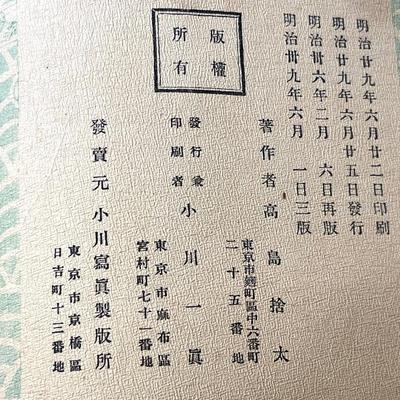 明治廿九年六月廿二日印刷
明治廿九年六月廿五日發行
明治卅六年二月六日再版
明治卅九年六月一日三版
版權
所有
著作者 高島捨太
東京市麹町區中六番町
二十五番地
發行兼
印刷者
小川一眞
東京市麻布區
宮村町七十一番地
發賣元 小川寫眞製版所
東京市京橋區
日吉町十三番地